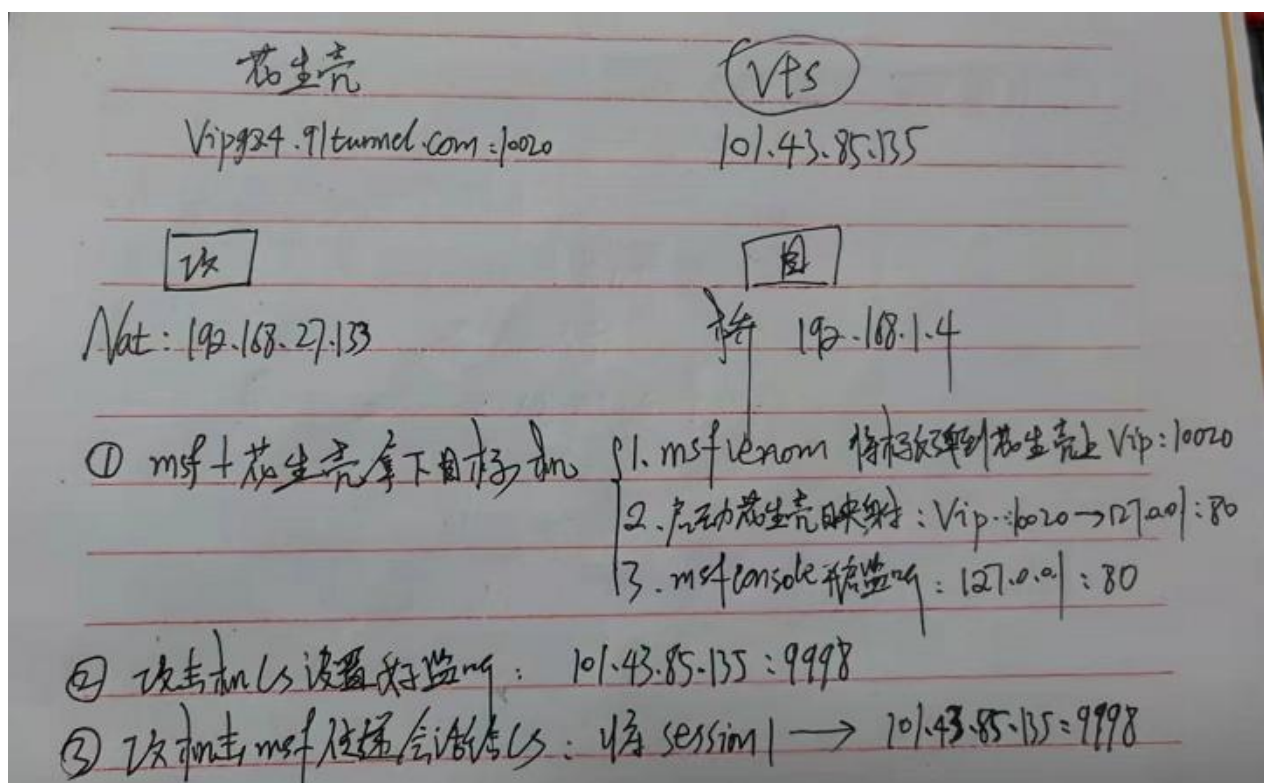 花生壳
VPS
Vipgz4.91tunnel.com:10020
101.43.85.135
攻
目
Nat: 192.168.27.133
桥 192.168.1.4
① msf+花生壳拿下目标机
1. msfvenom 将标反弹到花生壳上 Vip:10020
2. 启动花生壳映射: Vip:10020→127.0.0.1:80
3. msfconsole 开启监听: 127.0.0.1:80
② 攻击机CS设置好监听: 101.43.85.135:9998
③ 攻击机msf传递会话给CS: 将session1→101.43.85.135:9998